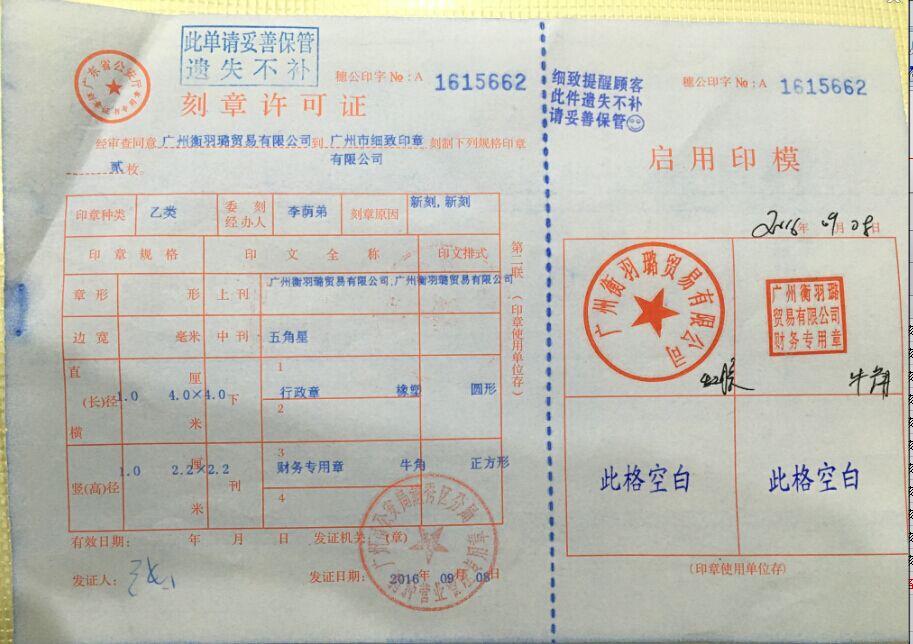 广东省公安厅
此单请妥善保管
遗失不补
穗公印字 №:A 1615662
刻章许可证
经审查同意 广州衡羽璐贸易有限公司 到 广州市细致印章 刻制下列规格印章
有限公司
贰 枚。
印章种类 乙类 委刻经办人 李荫弟 刻章原因 新刻,新刻
印章规格 印文全称 印文排式
章形 形 上刊 广州衡羽璐贸易有限公司,广州衡羽璐贸易有限公司
边宽 毫米 中刊 五角星
直 厘 1
(长)径 1.0 4.0×4.0 下 行政章 橡塑 圆形
横 米 2
厘 3
1.0 2.2×2.2 财务专用章 牛角 正方形
竖(高)径 刊
米 4
第二联(印章使用单位存)
有效日期: 年 月 日 发证机关:(章)
发证人: 发证日期: 2016年 09月 08日
细致提醒顾客
此件遗失不补
请妥善保管
穗公印字 №:A 1615662
启用印模
2016年 09月 08日
广州衡羽璐贸易有限公司
广州衡羽璐
贸易有限公司
财务专用章
牛角
此格空白 此格空白
(印章使用单位存)